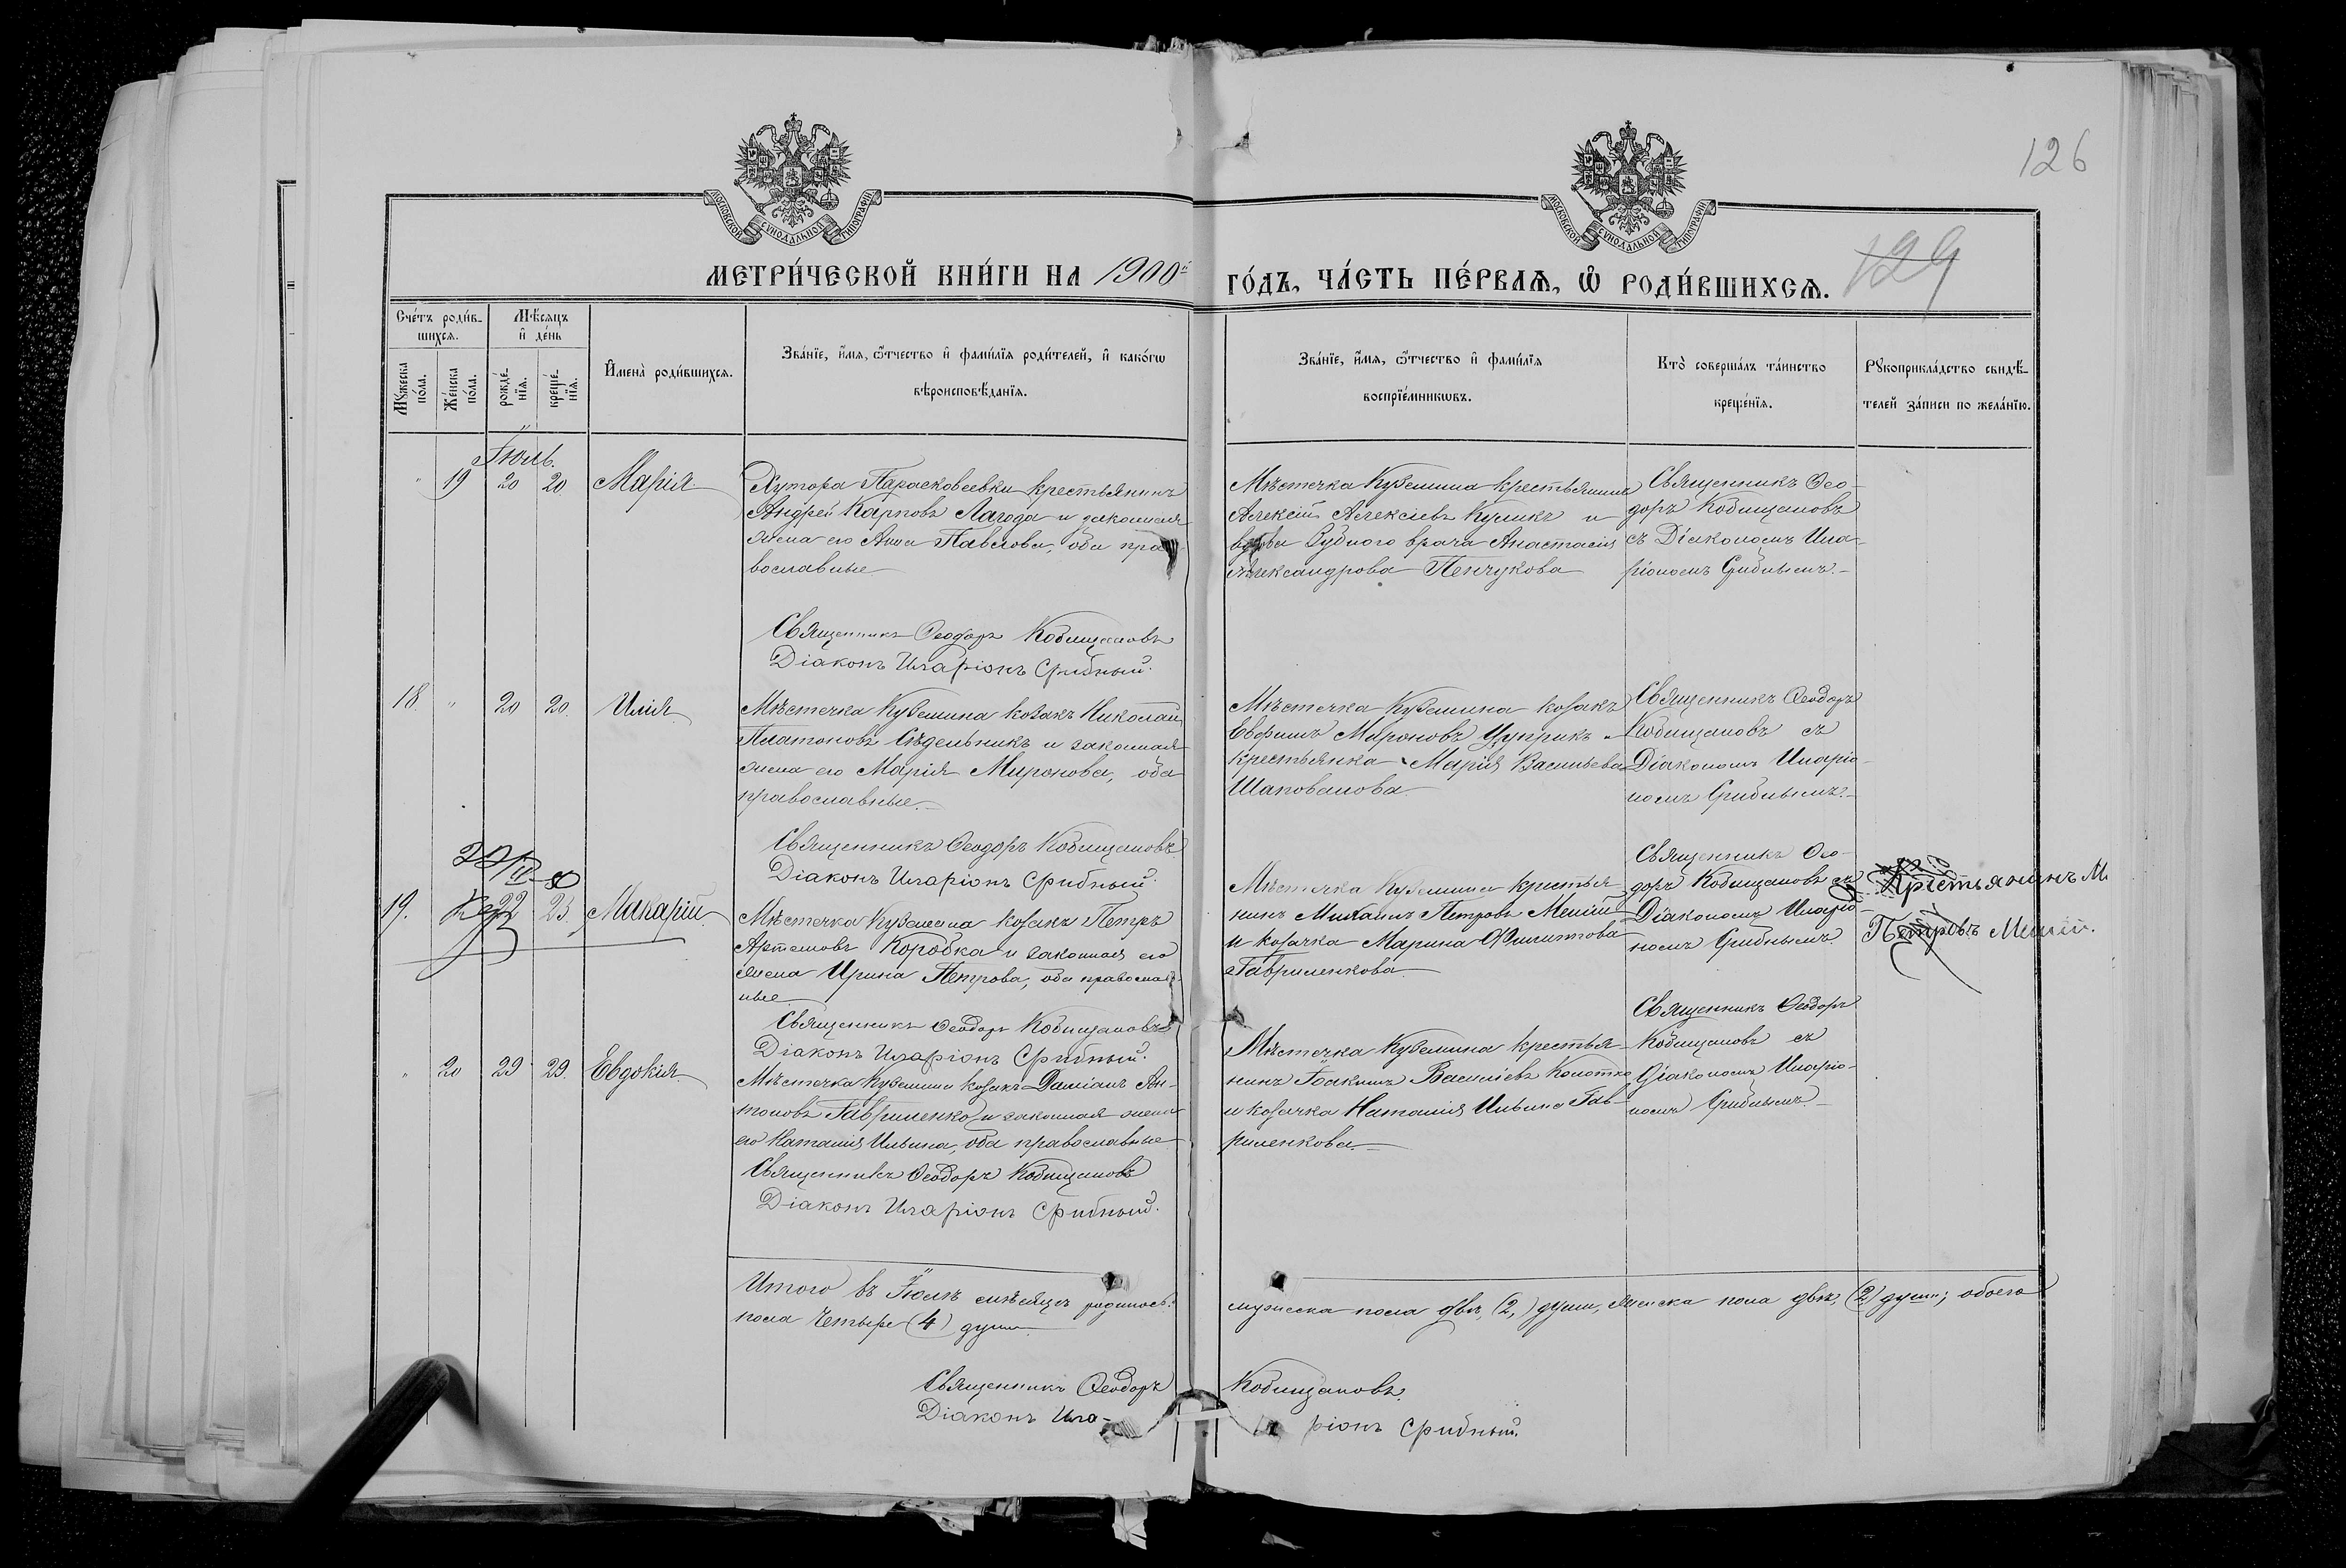 126
МОСКОВСКОЙ СУНОДАЛЬНОЙ ТИПОГРАФІИ
МОСКОВСКОЙ СУНОДАЛЬНОЙ ТИПОГРАФІИ
МЕТРИ́ЧЕСКОЙ КНИ́ГИ НА 1900й
ГО́ДЪ, ЧА́СТЬ ПЕ́РВАѦ, Ѡ҆ РОДИ́ВШИХСѦ.
129
Сче́тъ роди́в-
шихсѧ.
Мѣ́сѧцъ
и҆ де́нь
Мꙋ́жеска
по́ла.
Же́нска
по́ла.
рожде́-
нїѧ.
креще́-
нїѧ.
И҆мена̀ роди́вшихсѧ.
Зва́нїе, и҆́мѧ, ѻ҆́тчество и҆ фами́лїѧ роди́телей, и҆ како́гѡ
вѣроисповѣ́данїѧ.
Зва́нїе, и҆́мѧ, ѻ҆́тчество и҆ фами́лїѧ
воспрїе́мникѡвъ.
Кто̀ соверша́лъ та́инство
креще́нїѧ.
Рꙋкоприкла́дство свидѣ́-
телей за́писи по жела́нїю.
Іюль.
" 19 20 20 Марія
Хутора Парасковеевки крестьянинъ
Андрей Карповъ Лагода и законная
жена его Анна Павлова, оба пра-
вославные
Священникъ Ѳеодоръ Кобищановъ
Діаконъ Иларіонъ Срибный.
Мѣстечка Куземина крестьянинъ
Алексій Алексіевъ Куликъ и
вдова Зубного врача Анастасія
Александрова Пенчукова
Священникъ Ѳео-
доръ Кобищановъ
съ Діакономъ Ила-
ріономъ Срибнымъ.
18 " 20 20. Илія
Мѣстечка Куземина козакъ Николай
Платоновъ Сѣдельникъ и законная
жена его Марія Миронова, оба
православные.
Священникъ Ѳеодоръ Кобищановъ
Діаконъ Иларіонъ Срибный.
Мѣстечка Куземина козакъ
Евфимъ Мѵроновъ Цуприкъ и
крестьянка Марія Васильева
Шаповалова
Священникъ Ѳеодоръ
Кобищановъ съ
Діакономъ Иларіо-
номъ Срибнымъ.
19. 22 23. Макарій
Мѣстечка Куземина козакъ Петръ
Артемовъ Коробка и законная его
жена Ирина Петрова, оба православ-
ные
Священникъ Ѳеодоръ Кобищановъ
Діаконъ Иларіонъ Срибный.
Мѣстечка Куземина крестья-
нинъ Михаилъ Петровъ Мелій
и козачка Марина Филиппова
Гавриленкова
Священникъ Ѳео-
доръ Кобищановъ съ
Діакономъ Иларіо-
номъ Срибнымъ
Крестьянинъ М
Петровъ Мелій.
" 20 29 29. Евдокія
Мѣстечка Куземина козакъ Даміанъ Ан-
тоновъ Гавриленко и законная жена
его Наталія Ильина, оба православные
Священникъ Ѳеодоръ Кобищановъ
Діаконъ Иларіонъ Срибный.
Мѣстечка Куземина крестья-
нинъ Іоакимъ Василіевъ Колотко
и козачка Наталія Ильина Гав-
риленкова.
Священникъ Ѳеодоръ
Кобищановъ съ
Діакономъ Иларіо-
номъ Срибнымъ
Итого въ Іюлѣ мѣсяцѣ родилось:
мужеска пола двѣ, (2,) души, женска пола двѣ, (2) души; обоего
пола четыре (4) души
Священникъ Ѳеодоръ Кобищановъ.
Діаконъ Ила- ріонъ Срибный.